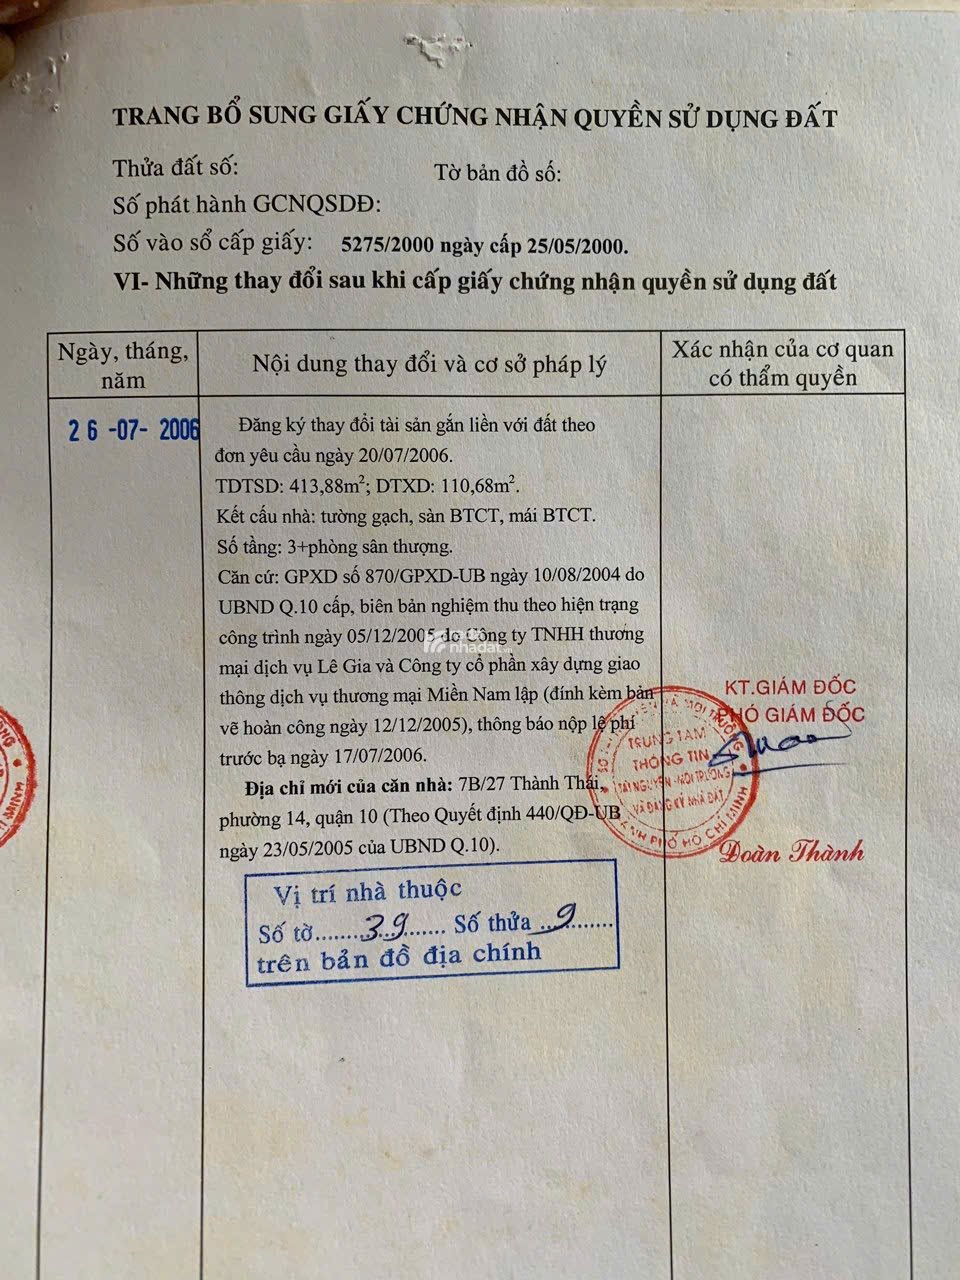 TRANG BỔ SUNG GIẤY CHỨNG NHẬN QUYỀN SỬ DỤNG ĐẤT
Thửa đất số: Tờ bản đồ số:
Số phát hành GCNQSDĐ:
Số vào sổ cấp giấy: 5275/2000 ngày cấp 25/05/2000.
VI- Những thay đổi sau khi cấp giấy chứng nhận quyền sử dụng đất
Ngày, tháng,
năm
Nội dung thay đổi và cơ sở pháp lý
Xác nhận của cơ quan
có thẩm quyền
26-07-2006
Đăng ký thay đổi tài sản gắn liền với đất theo
đơn yêu cầu ngày 20/07/2006.
TDTSD: 413,88m²; DTXD: 110,68m².
Kết cấu nhà: tường gạch, sàn BTCT, mái BTCT.
Số tầng: 3+phòng sân thượng.
Căn cứ: GPXD số 870/GPXD-UB ngày 10/08/2004 do
UBND Q.10 cấp, biên bản nghiệm thu theo hiện trạng
công trình ngày 05/12/2005 do Công ty TNHH thương
mại dịch vụ Lê Gia và Công ty cổ phần xây dựng giao
thông dịch vụ thương mại Miền Nam lập (đính kèm bản
vẽ hoàn công ngày 12/12/2005), thông báo nộp lệ phí
trước bạ ngày 17/07/2006.
Địa chỉ mới của căn nhà: 7B/27 Thành Thái,
phường 14, quận 10 (Theo Quyết định 440/QĐ-UB
ngày 23/05/2005 của UBND Q.10).
Vị trí nhà thuộc
Số tờ.....39...... Số thửa...9......
trên bản đồ địa chính
KT.GIÁM ĐỐC
PHÓ GIÁM ĐỐC
TRUNG TÂM
THÔNG TIN
TÀI NGUYÊN - MÔI TRƯỜNG
VÀ ĐĂNG KÝ NHÀ ĐẤT
THÀNH PHỐ HỒ CHÍ MINH
Đoàn Thành
nhàđất